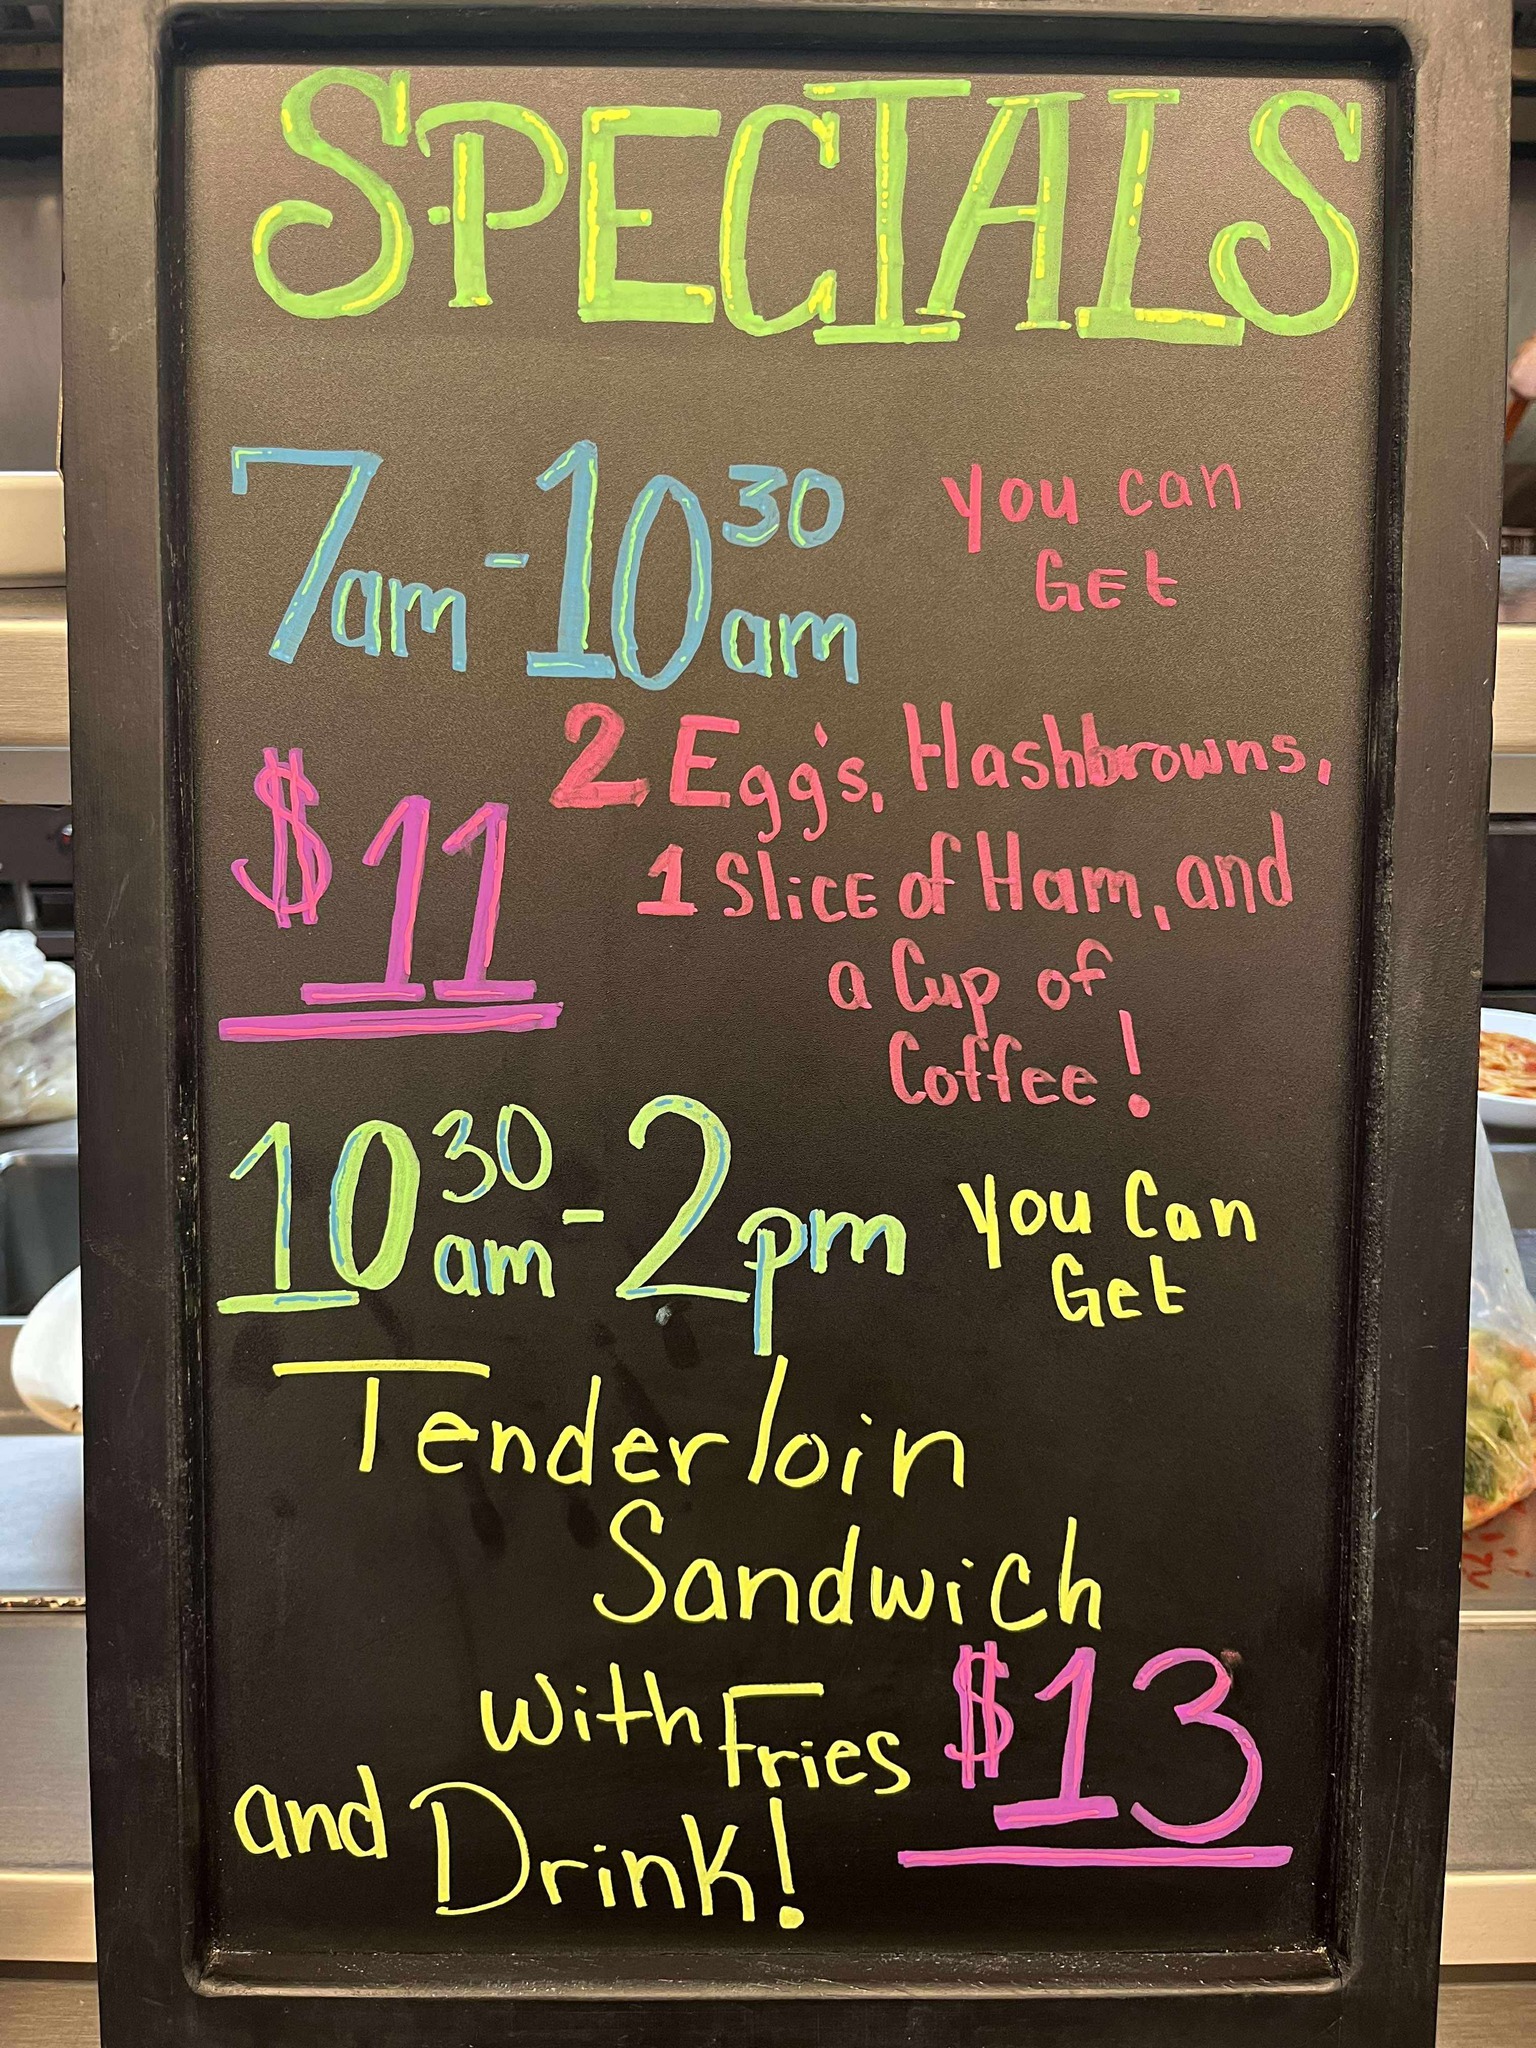 SPECIALS
7am - 10 30 am
you can
GEt
$11
2 Egg's, Hashbrowns,
1 SliCE of Ham, and
a Cup of
Coffee!
10 30 am - 2pm
you Can
Get
Tenderloin
Sandwich
with Fries
$13
and Drink!